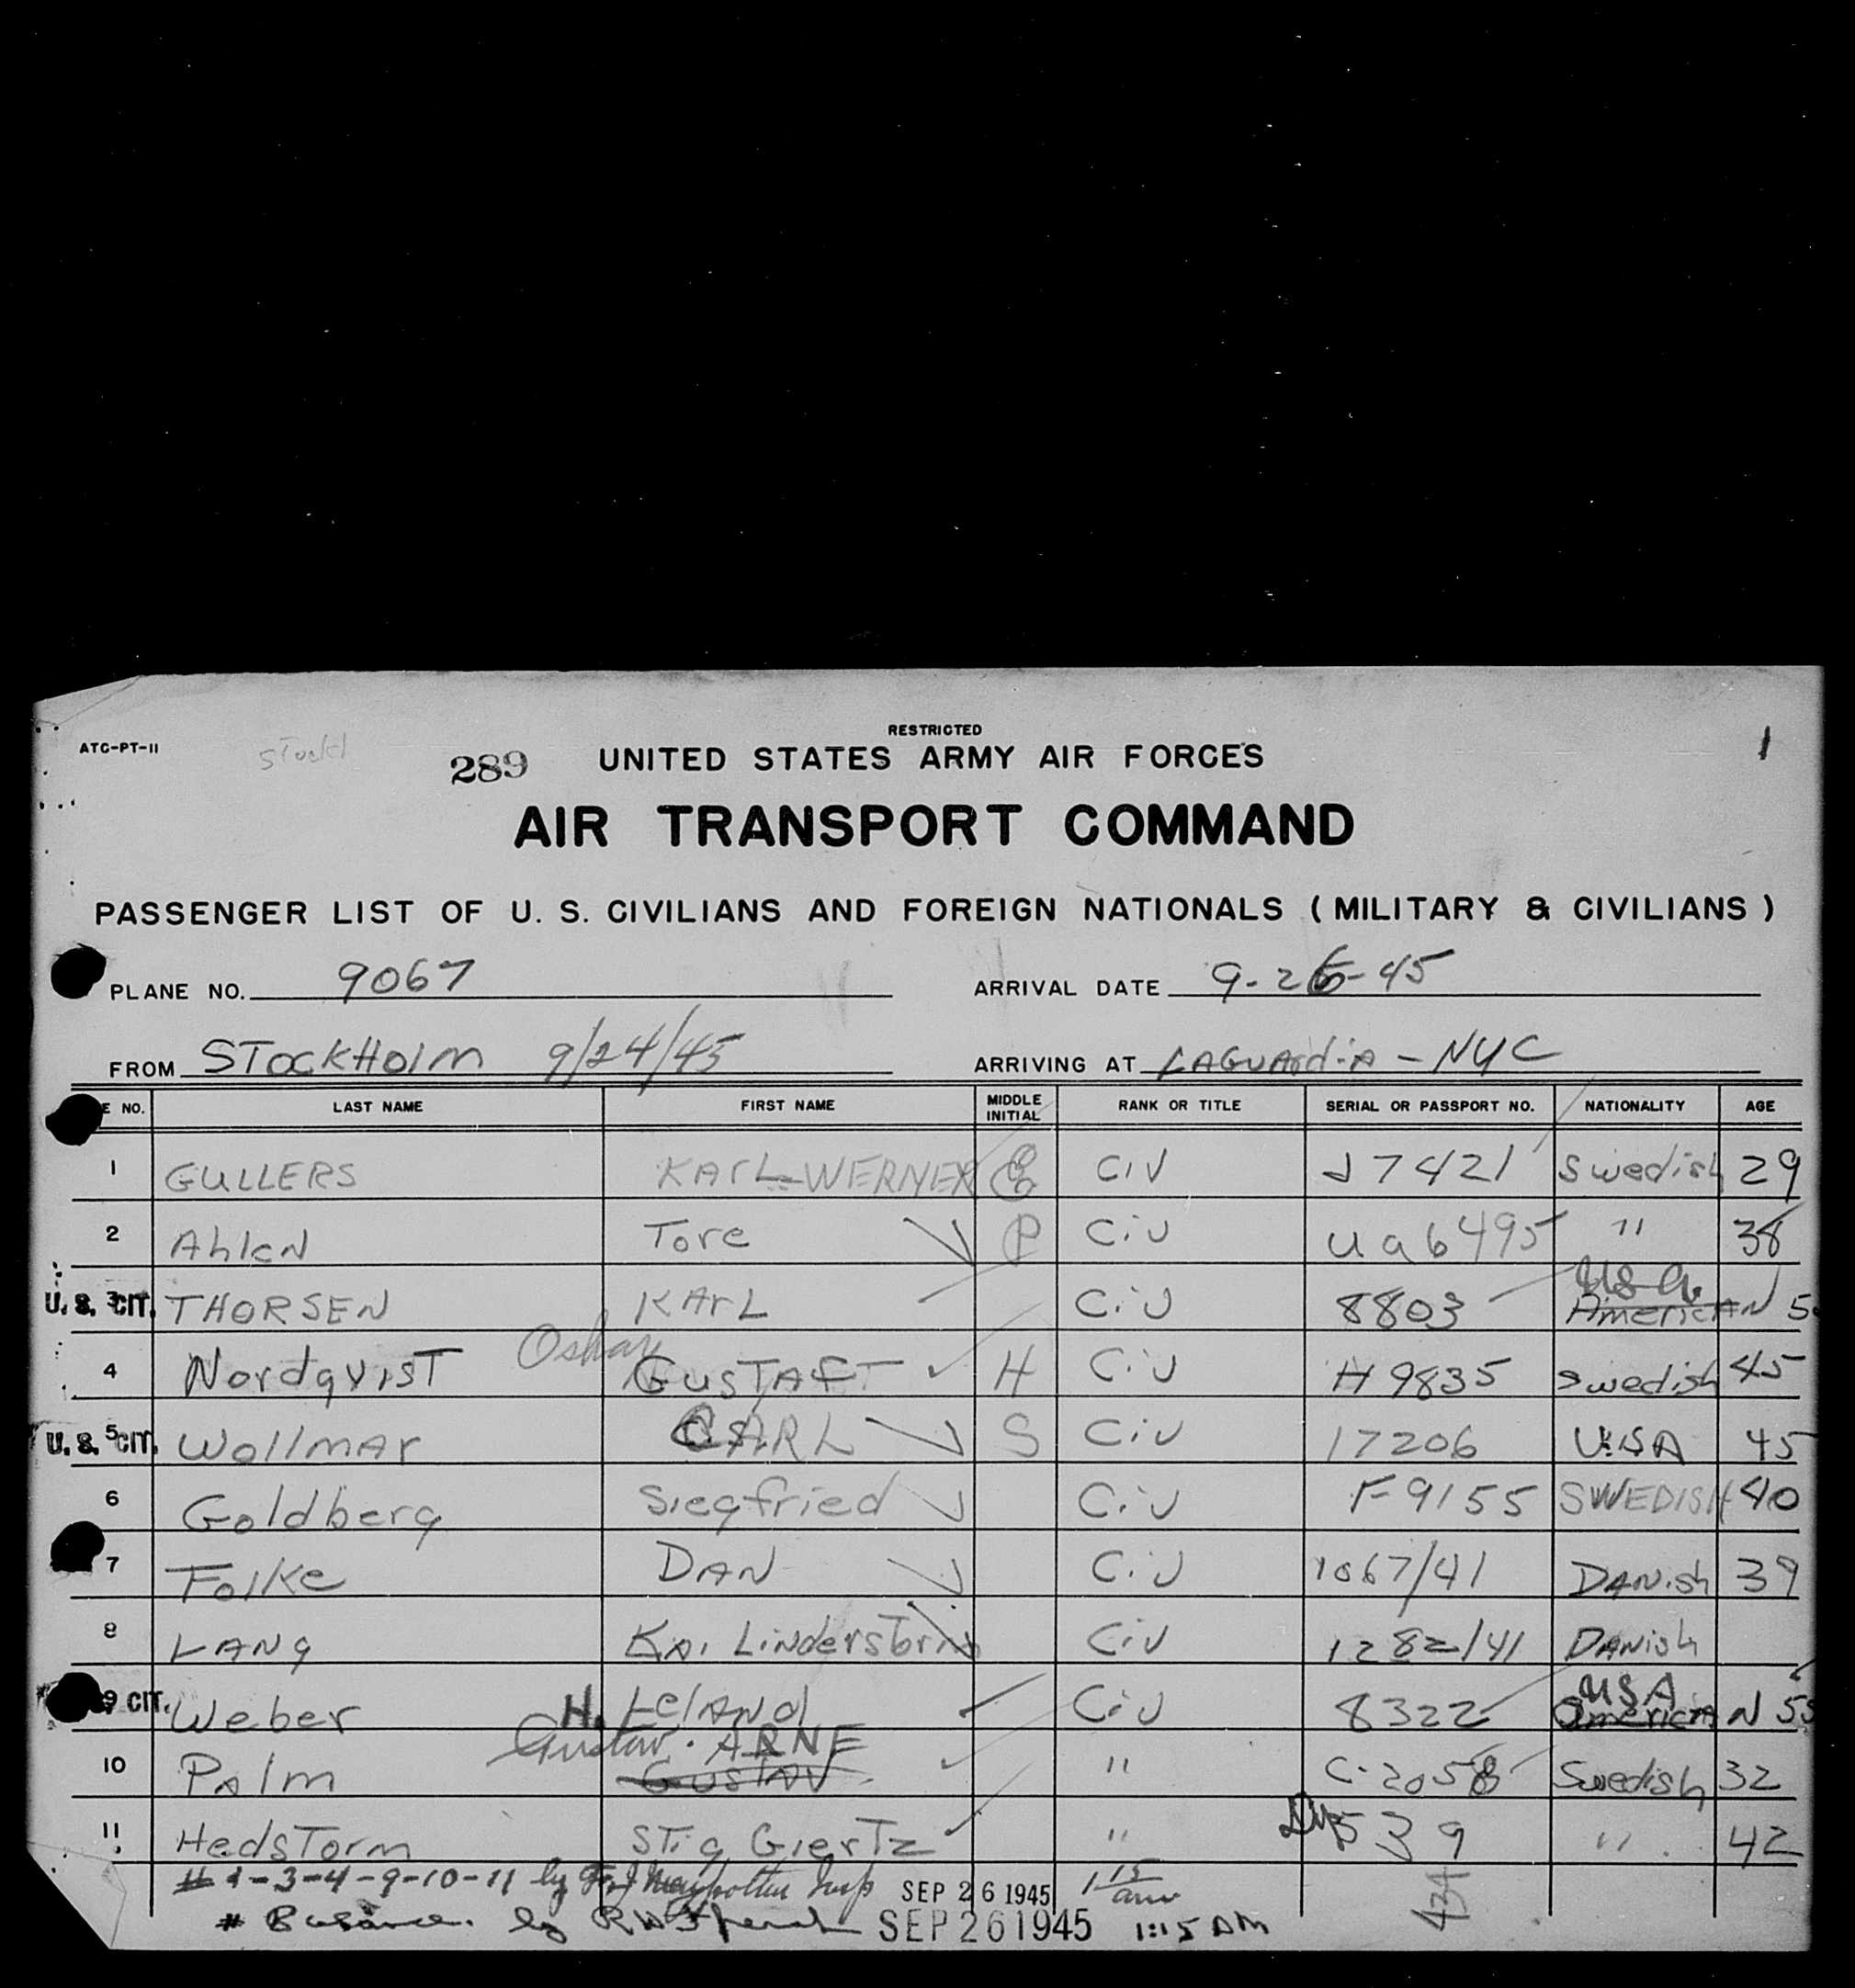 RESTRICTED
ATC-PT-11
289 UNITED STATES ARMY AIR FORCES 1
AIR TRANSPORT COMMAND
PASSENGER LIST OF U. S. CIVILIANS AND FOREIGN NATIONALS ( MILITARY & CIVILIANS )
PLANE NO. 9067 ARRIVAL DATE 9-26-45
FROM STOCKHOLM 9/24/45 ARRIVING AT LAGUARDIA - NYC
E NO. LAST NAME FIRST NAME MIDDLE INITIAL RANK OR TITLE SERIAL OR PASSPORT NO. NATIONALITY AGE
1 GULLERS KARL-WERNER E CIV J7421 Swedish 29
2 Ahlen Tore P Civ Ua6495 " 38
U. S. CIT. 3 THORSEN KARL Civ 8803 USA American
4 Nordqvist Oskar GUSTAF H Civ H 9835 Swedish 45
U. S. CIT. 5 Wollmar CARL S Civ 17206 USA 45
6 Goldberg Siegfried Civ F 9155 SWEDISH 40
7 Folke DAN Civ 1067/41 Danish 39
8 LANG Civ 1282/41 Danish
9 CIT. Weber H. Leland Civ 8322 USA American 55
10 Palm Gustav. ARNE Gustav " C.2058 Swedish 32
11 HedsTorm Stig GierTz " 539 " 42
# 1-3-4-9-10-11 by Insp SEP 26 1945 1 15 am
# by SEP 26 1945 1:15 AM